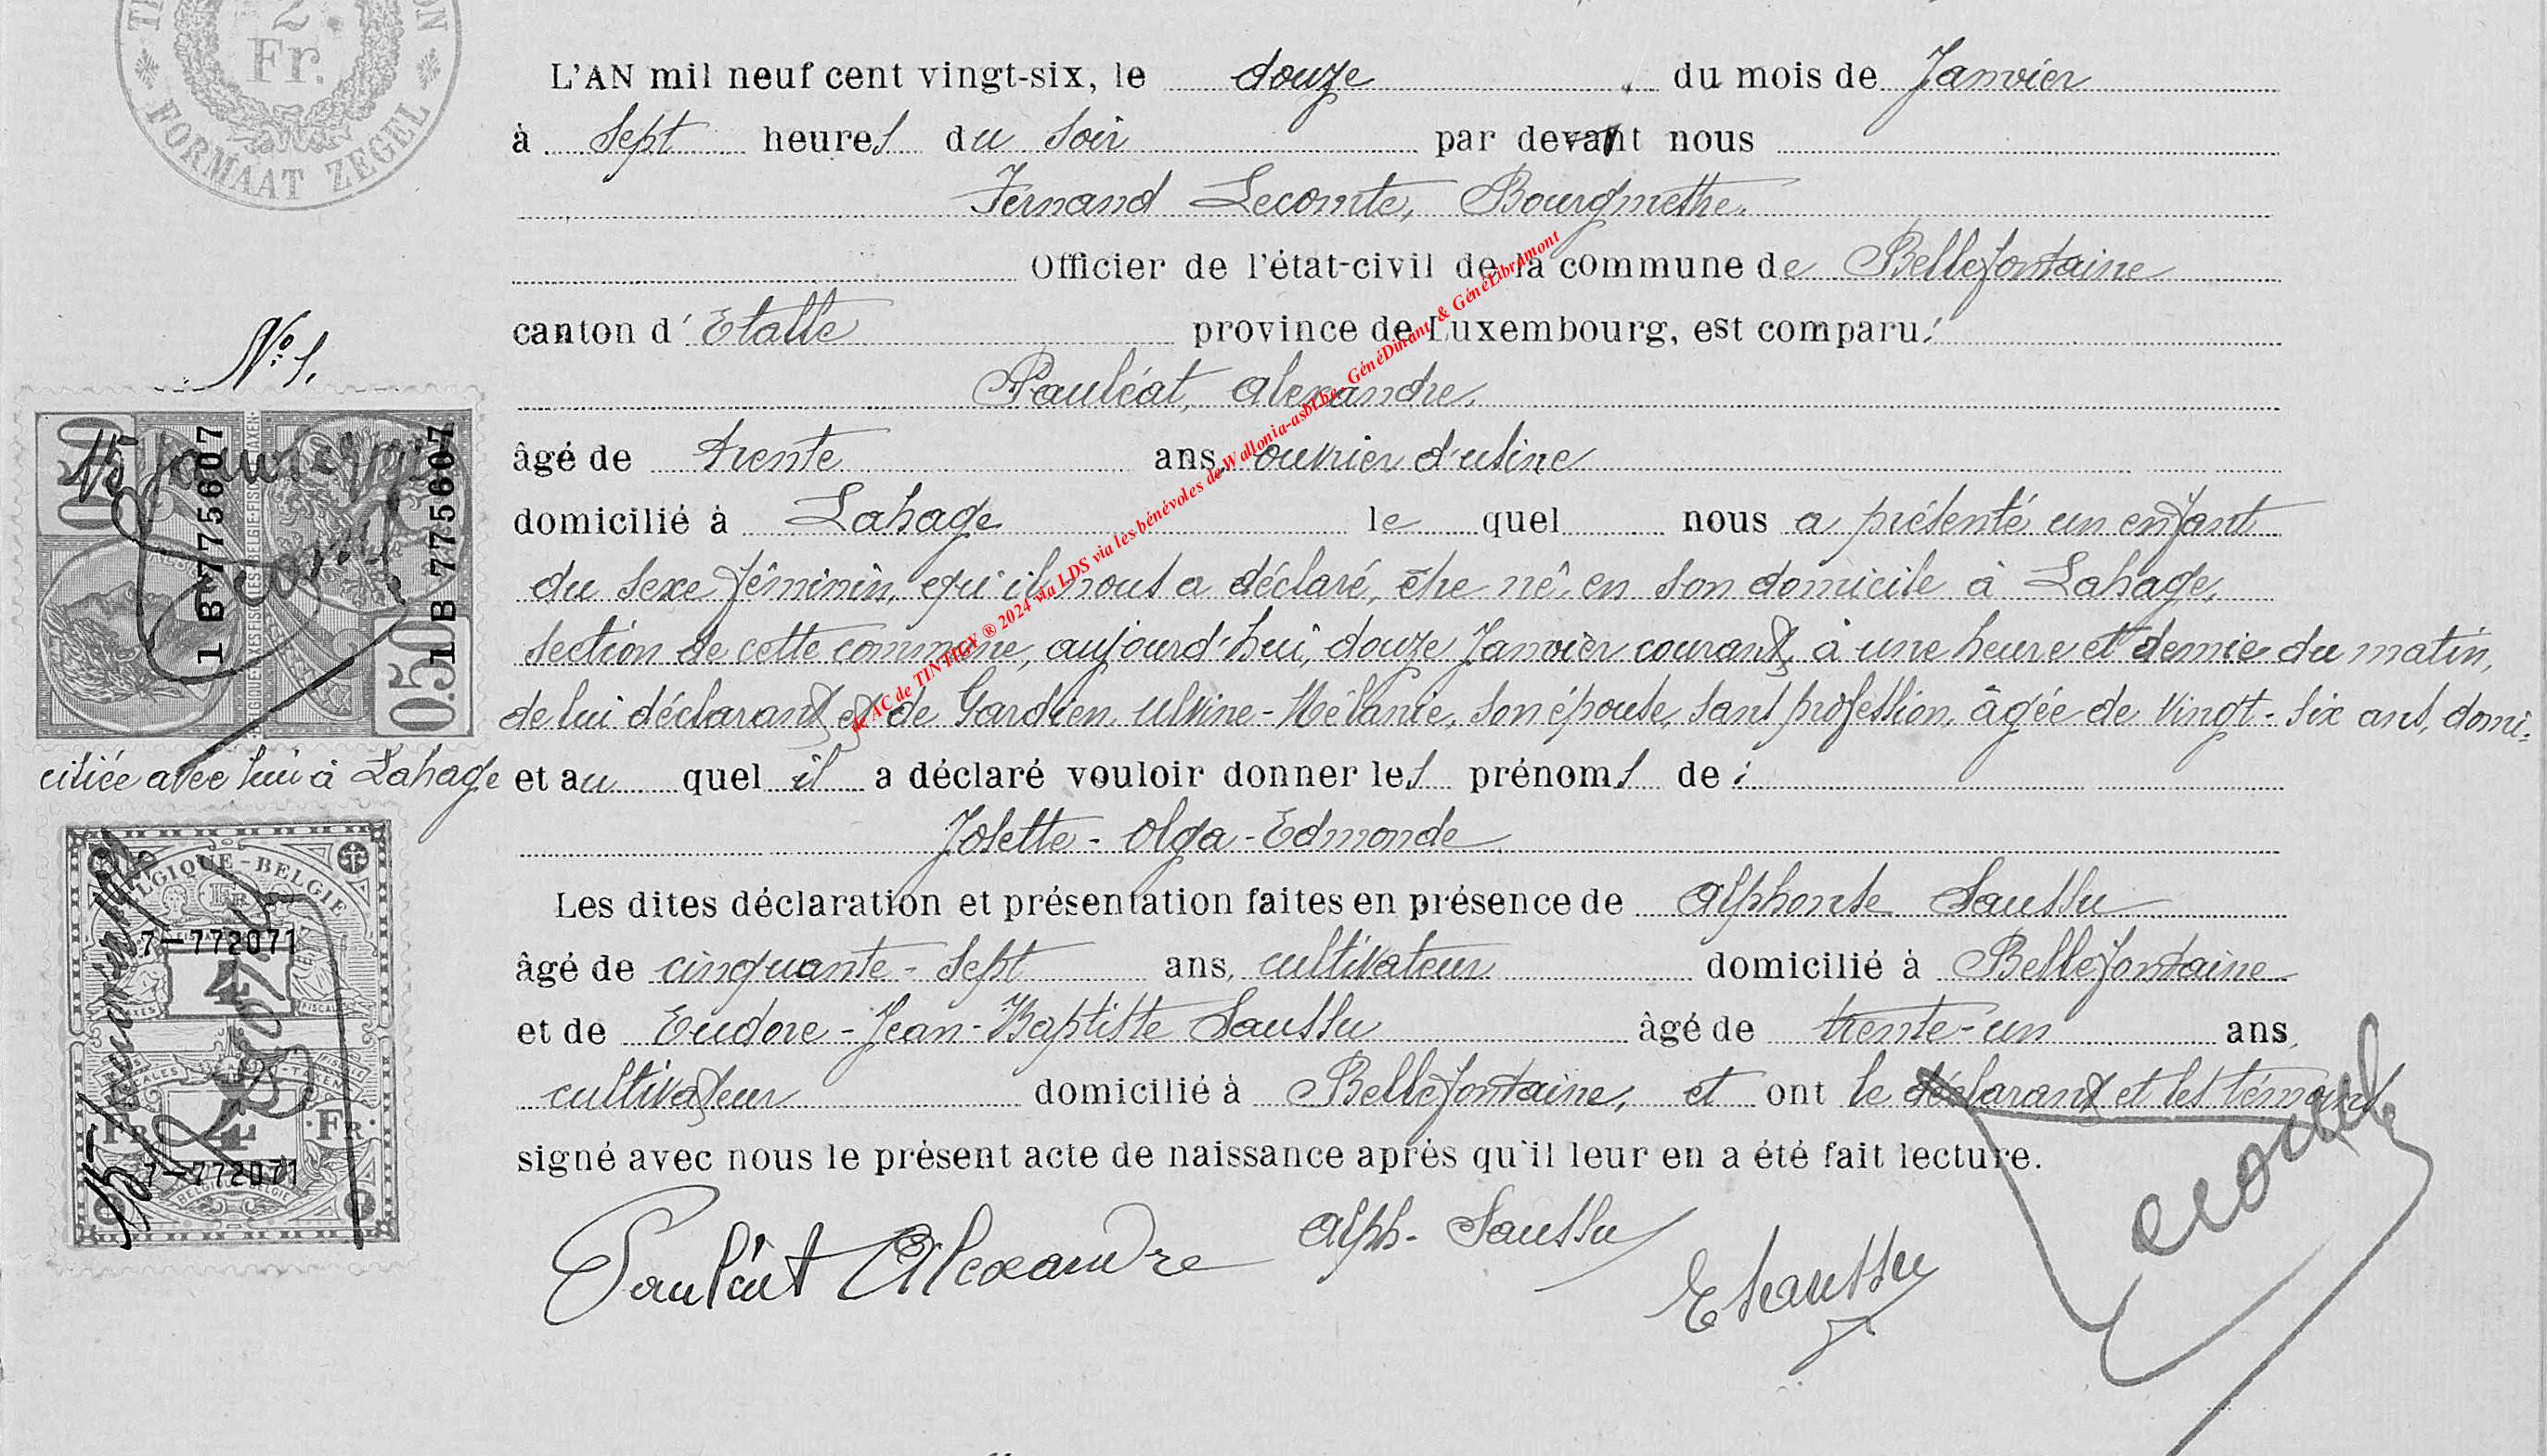 2
Fr.
FORMAAT ZEGEL
L'AN mil neuf cent vingt-six, le douze du mois de Janvier
à Sept heures du soir par devant nous
Fernand Lecomte, Bourgmestre.
Officier de l'état-civil de la commune de Bellefontaine
canton d' Etalle province de Luxembourg, est comparu:
N° 1.
Pauléat, Alexandre,
âgé de trente ans, ouvrier d'usine
domicilié à Lahage le quel nous a présenté un enfant
du sexe féminin, qu'il nous a déclaré, être né, en son domicile à Lahage,
section de cette commune, aujourd'hui, douze Janvier courant, à une heure et demie du matin,
de lui déclarant et de Gardien, Ulvine-Mélanie, son épouse, sans profession, âgée de vingt-six ans, domi-
ciliée avec lui à Lahage et au quel il a déclaré vouloir donner les prénoms de :
Josette-Olga-Edmonde
Les dites déclaration et présentation faites en présence de Alphonse Saussu
âgé de cinquante-sept ans, cultivateur domicilié à Bellefontaine
et de Eudore-Jean-Baptiste Saussu âgé de trente-un ans,
cultivateur domicilié à Bellefontaine, et ont le déclarant et les témoins
signé avec nous le présent acte de naissance après qu'il leur en a été fait lecture.
Pauléat Alexandre Alph. Saussu
E Saussu
0.50
1 B 7756607
1 B 7756607
0.50
BELGIQUE-BELGIE
7-772071
4
4
FR FR
7-772071
BELGIQUE BELGIE
de AC de TINTIGY ® 2024 via LDS via les bénévoles de Wallonia-asbl.be - GénéDinant & GénéLibramont